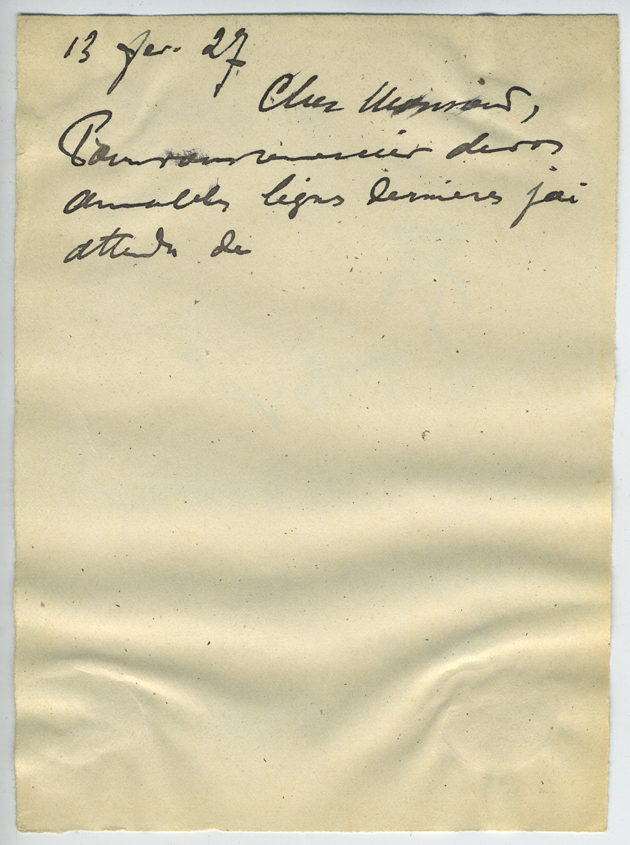 13 fev. 27
Cher Monsieur,
Pour vous remercier de vos
aimables lignes dernieres j'ai
attendu de